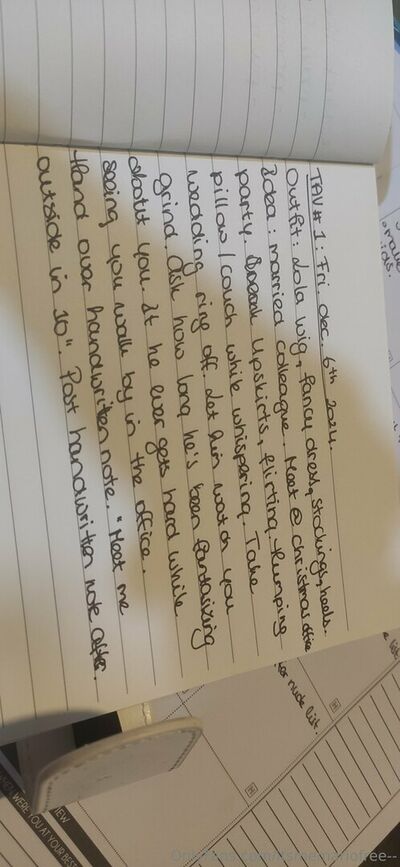 TAV #1: Fri. dec. 6th 2024.
Outfit: Lola wig, fancy dress, stockings, heels.
Idea: married colleague. Meet @ christmas office
party. Upskirts, flirting, humping
pillow/couch while whispering. Take
wedding ring off. Let him watch you
grind. Ask how long he's been fantasizing
about you. If he ever gets hard while
seeing you walk by in the office.
Hand over handwritten note. "Meet me
outside in 10". Post handwritten note after.
nude list.
WHEN WERE YOU AT YOUR BEST